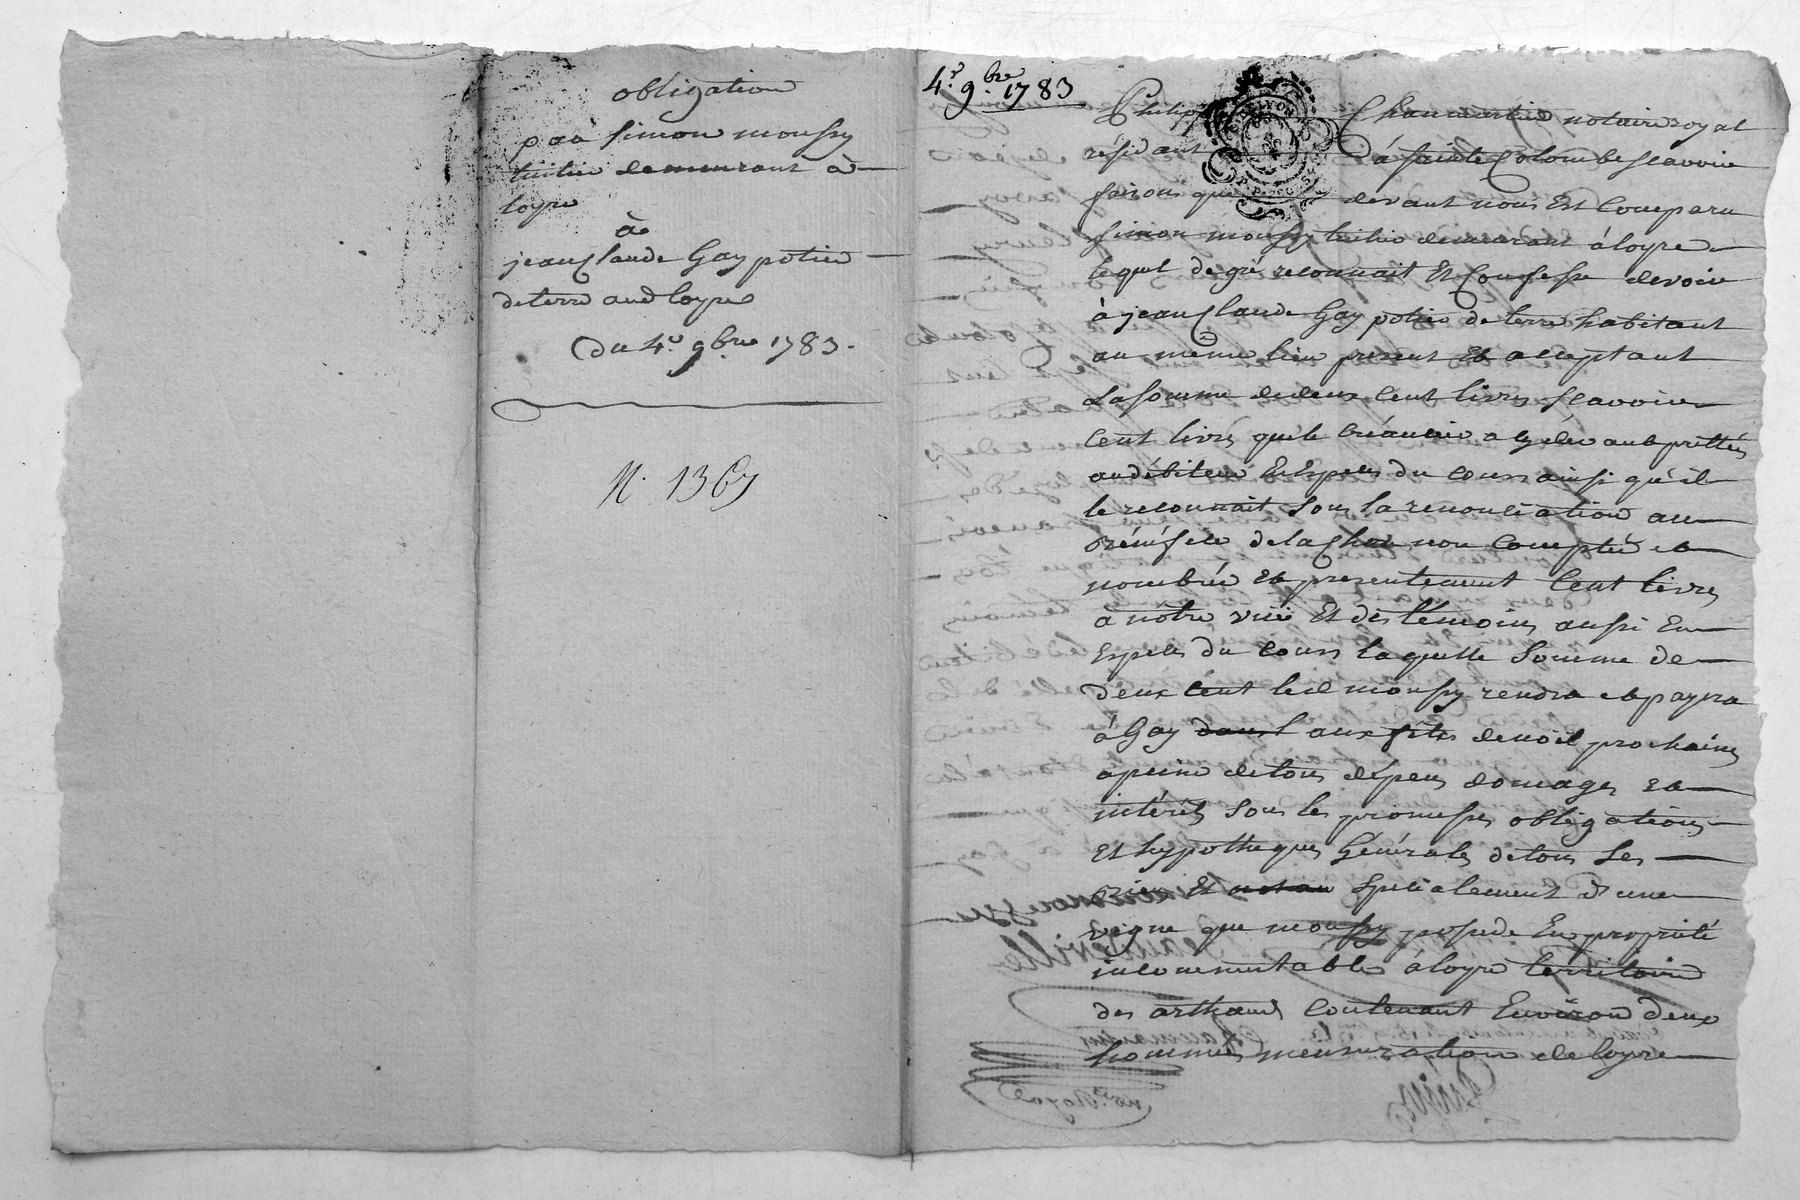 obligation
par Simon moussy
tuilier demeurant à
loyre
à
jean Claude Gay potier
de terre aud loyre
Du 4e 9bre 1783.
N. 1367
4e 9bre 1783
Philippe Chaumartin notaire royal
résidant à sainte Colombe scavoir
faisons que devant nous Est Comparu
simon moussy tuilier demeurant à loyre
lequel de gré reconnait Et Confesse devoir
à jean Claude Gay potier de terre habitant
au meme lieu present Et acceptant
La somme de deux Cent livres scavoir
Cent livres que le Créancier a cy devant prettés
au débiteur En Especes du cours ainsi qu'il
le reconnait sous la renonciation au
bénéfice de la Chose non Comptée et
nombrée Et presentement Cent livres
à notre vüe Et des témoins aussi En
Especes du cours laquelle somme de
deux Cent le d moussy rendra et payera
à Gay aux fêtes de noël prochaines
a peine de tous dépens domages et
intérêts sous les promesses obligations
Et hypotheques Générales de tous ses
biens Et spécialement d'une
vigne que moussy possede En propriété
incommutable à loyre territoire
des arthaud Contenant Environ deux
hommes mensuration de loyre